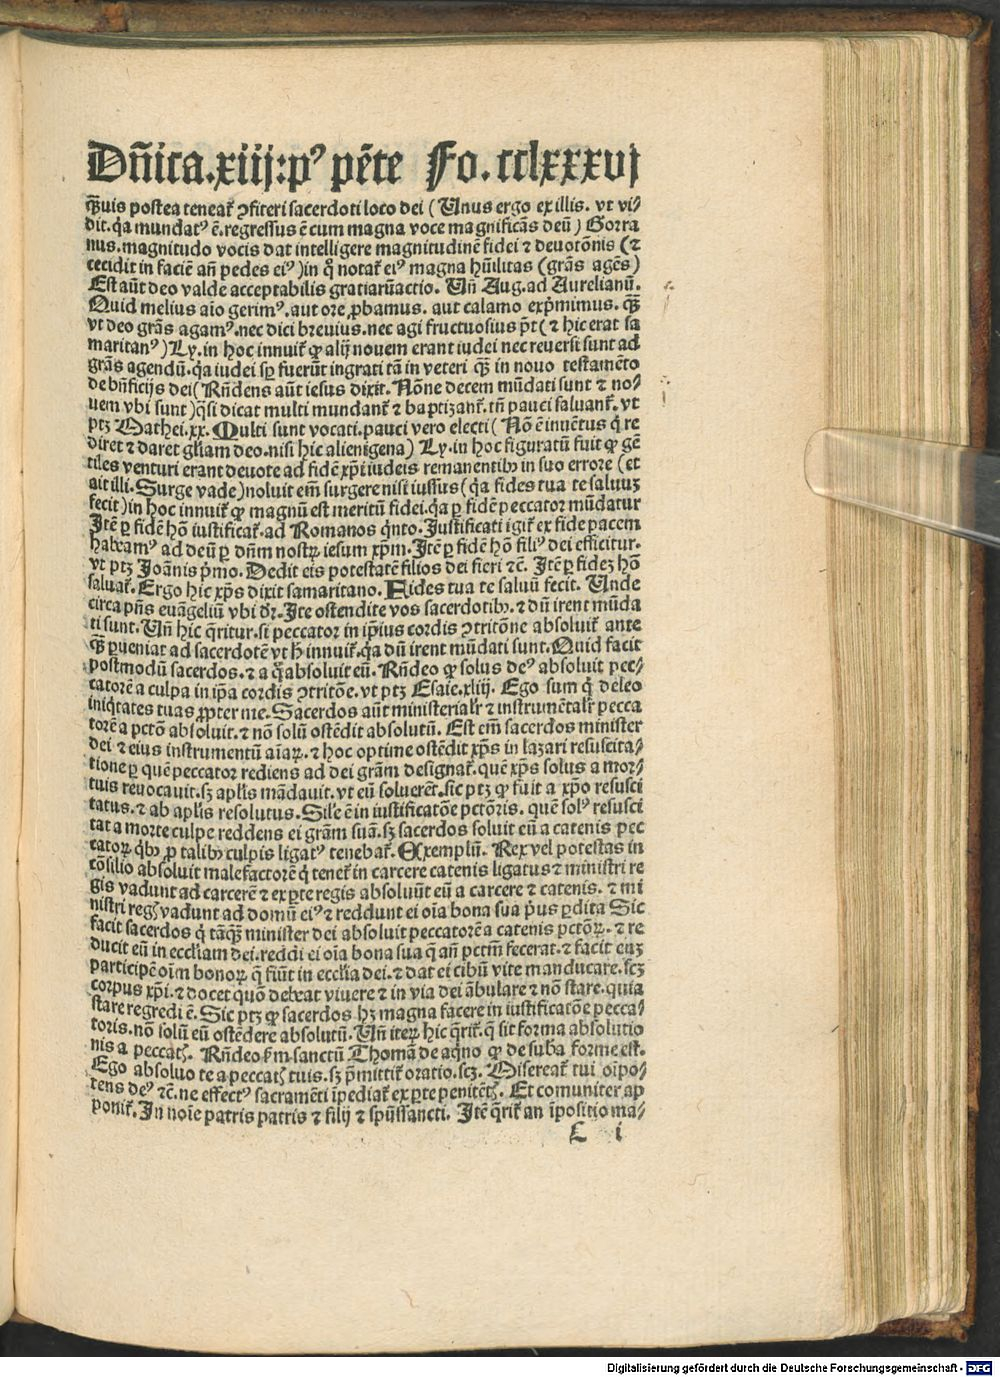 Dñica.xiij:pꝰ pēte Fo.cclxxxvj
q̄ꝫuis postea teneat᷑ ꝯfiteri sacerdoti loco dei (Unus ergo ex illis. vt vi⸗
dit.q̇a mundatꝰ ē.regressus ē cum magna voce magnificãs deū) Gorra
nus.magnitudo vocis dat intelligere magnitudinē fidei ⁊ deuotōnis (⁊
cecidit in faciē añ pedes eiꝰ)in q̊ notat᷑ eiꝰ magna hūilitas (grãs agēs)
Est aūt deo valde acceptabilis gratiarūactio. Uñ Aug.ad Aurelianū.
Quid melius aīo gerimꝰ.aut ore ꝓbamus. aut calamo exp̄mimus. q̄ꝫ
vt deo grãs agamꝰ.nec dici breuius.nec agi fructuosius p̄t(⁊ hic erat sa
maritanꝰ)Ly.in hoc innuit᷑ ꝙ alij nouem erant iudei nec reuersi sunt ad
grãs agendū.q̇a iudei sꝑ fuerūt ingrati tã in veteri q̄ꝫ in nouo testamēto
de bñficijs dei(Rñdens aūt iesus dixit. Nōne decem mūdati sunt ⁊ no⸗
uem vbi sunt)q̄si dicat multi mundant᷑ ⁊ baptizant᷑.tñ pauci saluant᷑.vt
ptꝫ Mathei.xx. Multi sunt vocati.pauci vero electi(Nō ē inuētus q̇ re
diret ⁊ daret gl̄iam deo.nisi hic alienigena) Ly.in hoc figuratū fuit ꝙ gē
tiles venturi erant deuote ad fidē xp̄i iudeis remanentibꝰ in suo errore (et
ait illi.Surge vade)noluit em̄ surgere nisi iussus(q̇a fides tua te saluuꝫ
fecit)in hoc innuit᷑ ꝙ magnū est meritū fidei.q̇a ꝑ fidē peccator mūdatur
Itē ꝑ fidē hō iustificat᷑.ad Romanos q̇nto.Iustificati igit᷑ ex fide pacem
habeamꝰ ad deū ꝑ dn̄m nostꝝ iesum xp̄m.Itē ꝑ fidē hō filiꝰ dei efficitur.
vt ptꝫ Joānis p̄mo.Dedit eis potestatē filios dei fieri ⁊c̄. Itē ꝑ fideꝫ hō
saluat᷑.Ergo hic xp̄s dixit samaritano.Fides tua te saluū fecit. Unde
circa p̄ns euãgeliū vbi dr̄.Ite ostendite vos sacerdotibꝰ.⁊ dū irent mūda
ti sunt.Uñ hic q̄ritur.si peccator in ip̄ius cordis ꝯtritōne absoluit᷑ ante
q̄ꝫ ꝑueniat ad sacerdotē vt h̄ innuit᷑.q̇a dū irent mūdati sunt.Quid facit
postmodū sacerdos.⁊ a q̊ absoluit eū.Rñdeo ꝙ solus deꝰ absoluit pec⸗
catorē a culpa in ip̄a cordis ꝯtritōe.vt ptꝫ Esaie.xliij. Ego sum q̇ deleo
iniq̇tates tuas ꝓpter me.Sacerdos aūt ministerialr̄ ⁊ instrumētalr̄ pecca
torē a pctō absoluit.⁊ nō solū ostēdit absolutū. Est em̄ sacerdos minister
dei ⁊ eius instrumentū aīaꝝ.⁊ hoc optime ostēdit xp̄s in lazari resuscita⸗
tione ꝑ quē peccator rediens ad dei grãm designat᷑.quē xp̄s solus a mor⸗
tuis reuocauit.sꝫ aplīs mãdauit.vt eū soluerēt.sic ptꝫ ꝙ fuit a xp̄o resusci
tatus.⁊ ab aplīs resolutus.Sil̄e ē in iustificatōe pctōris. quē solꝰ resusci
tat a morte culpe reddens ei grãm suã.sꝫ sacerdos soluit eū a catenis pec
catoꝝ q̇bꝰ ꝓ talibꝰ culpis ligatꝰ tenebat᷑.Exemplū. Rex vel potestas in
cōsilio absoluit malefactorē q̇ tenet᷑ in carcere catenis ligatus ⁊ ministri re
gis vadunt ad carcerē ⁊ ex ꝑte regis absoluūt eū a carcere ⁊ catenis. ⁊ mi
nistri regꝭ vadunt ad domū eiꝰ ⁊ reddunt ei oīa bona sua p̄us ꝑdita Sic
facit sacerdos q̇ tãq̄ꝫ minister dei absoluit peccatorē a catenis pctōꝝ. ⁊ re
ducit eū in eccl̄iam dei.reddi ei oīa bona sua q̄ añ pctm̄ fecerat.⁊ facit euꝫ
participē oīm bonoꝝ q̄ fiūt in eccl̄ia dei.⁊ dat ei cibū vite manducare.scꝫ
corpus xp̄i.⁊ docet quō debeat viuere ⁊ in via dei ãbulare ⁊ nō stare.quia
stare regredi ē. Sic ptꝫ ꝙ sacerdos hꝫ magna facere in iustificatōe pecca⸗
toris.nō solū eū ostēdere absolutū.Uñ iteꝝ hic q̄rit᷑.q̄ sit forma absolutio
nis a peccatꝭ. Rñdeo ẜm sanctū Thomã de aq̇no ꝙ de sub̄a forme est.
Ego absoluo te a peccatꝭ tuis.sꝫ p̄mittit᷑ oratio.scꝫ.Misereat᷑ tui oīpo⸗
tens deꝰ ⁊c̄.ne effectꝰ sacramēti īpediat᷑ ex ꝑte penitētꝭ. Et comuniter ap
ponit᷑.In noīe patris patris ⁊ filij ⁊ spūssancti. Itē q̄rit᷑ an īpositio ma⸗
L i
Digitalisierung gefördert durch die Deutsche Forschungsgemeinschaft - DFG